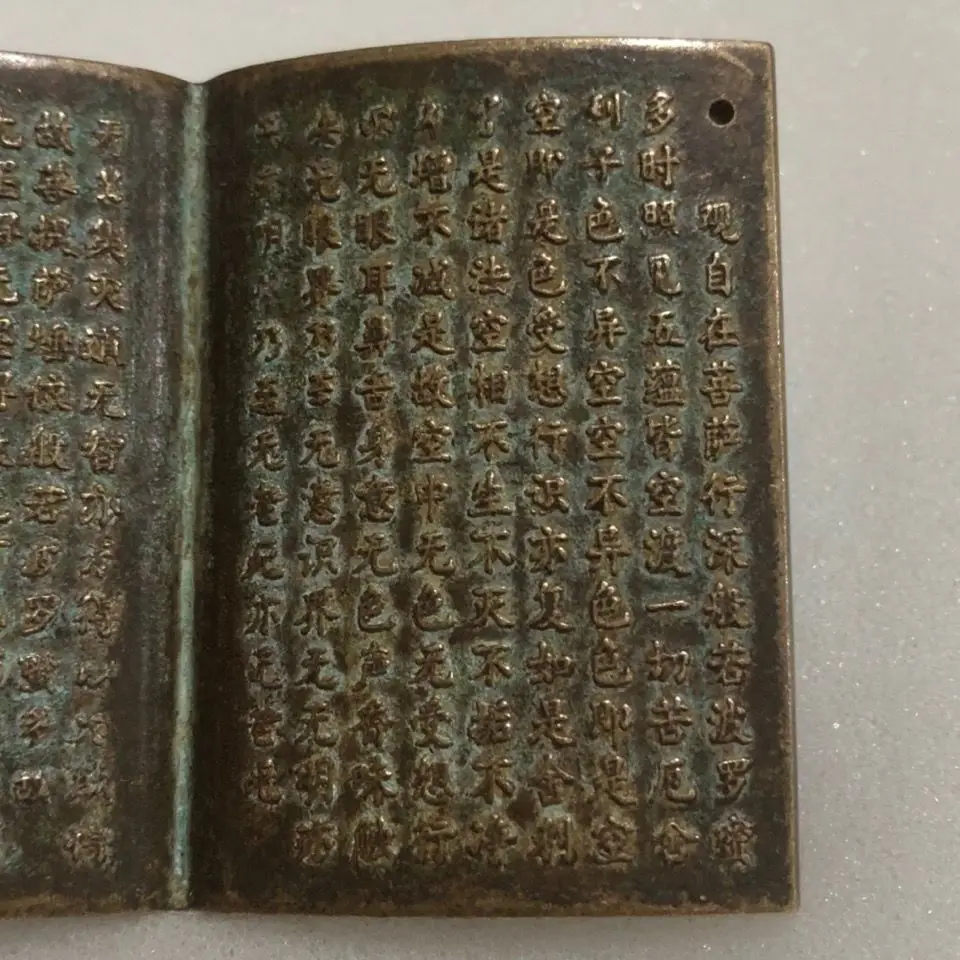 观自在菩萨行深般若波罗蜜
多时照见五蕴皆空渡一切苦厄舍
利子色不异空空不异色色即是空
空即是色受想行识亦复如是舍利
子是诸法空相不生不灭不垢不净
不增不减是故空中无色无受想行
识无眼耳鼻舌身意无色声香味触
法无眼界乃至无意识界无无明亦
无无明尽乃至无老死亦无老死
无苦集灭道无智亦无得以无所得
故菩提萨埵依般若波罗蜜多故
无罣碍无罣碍